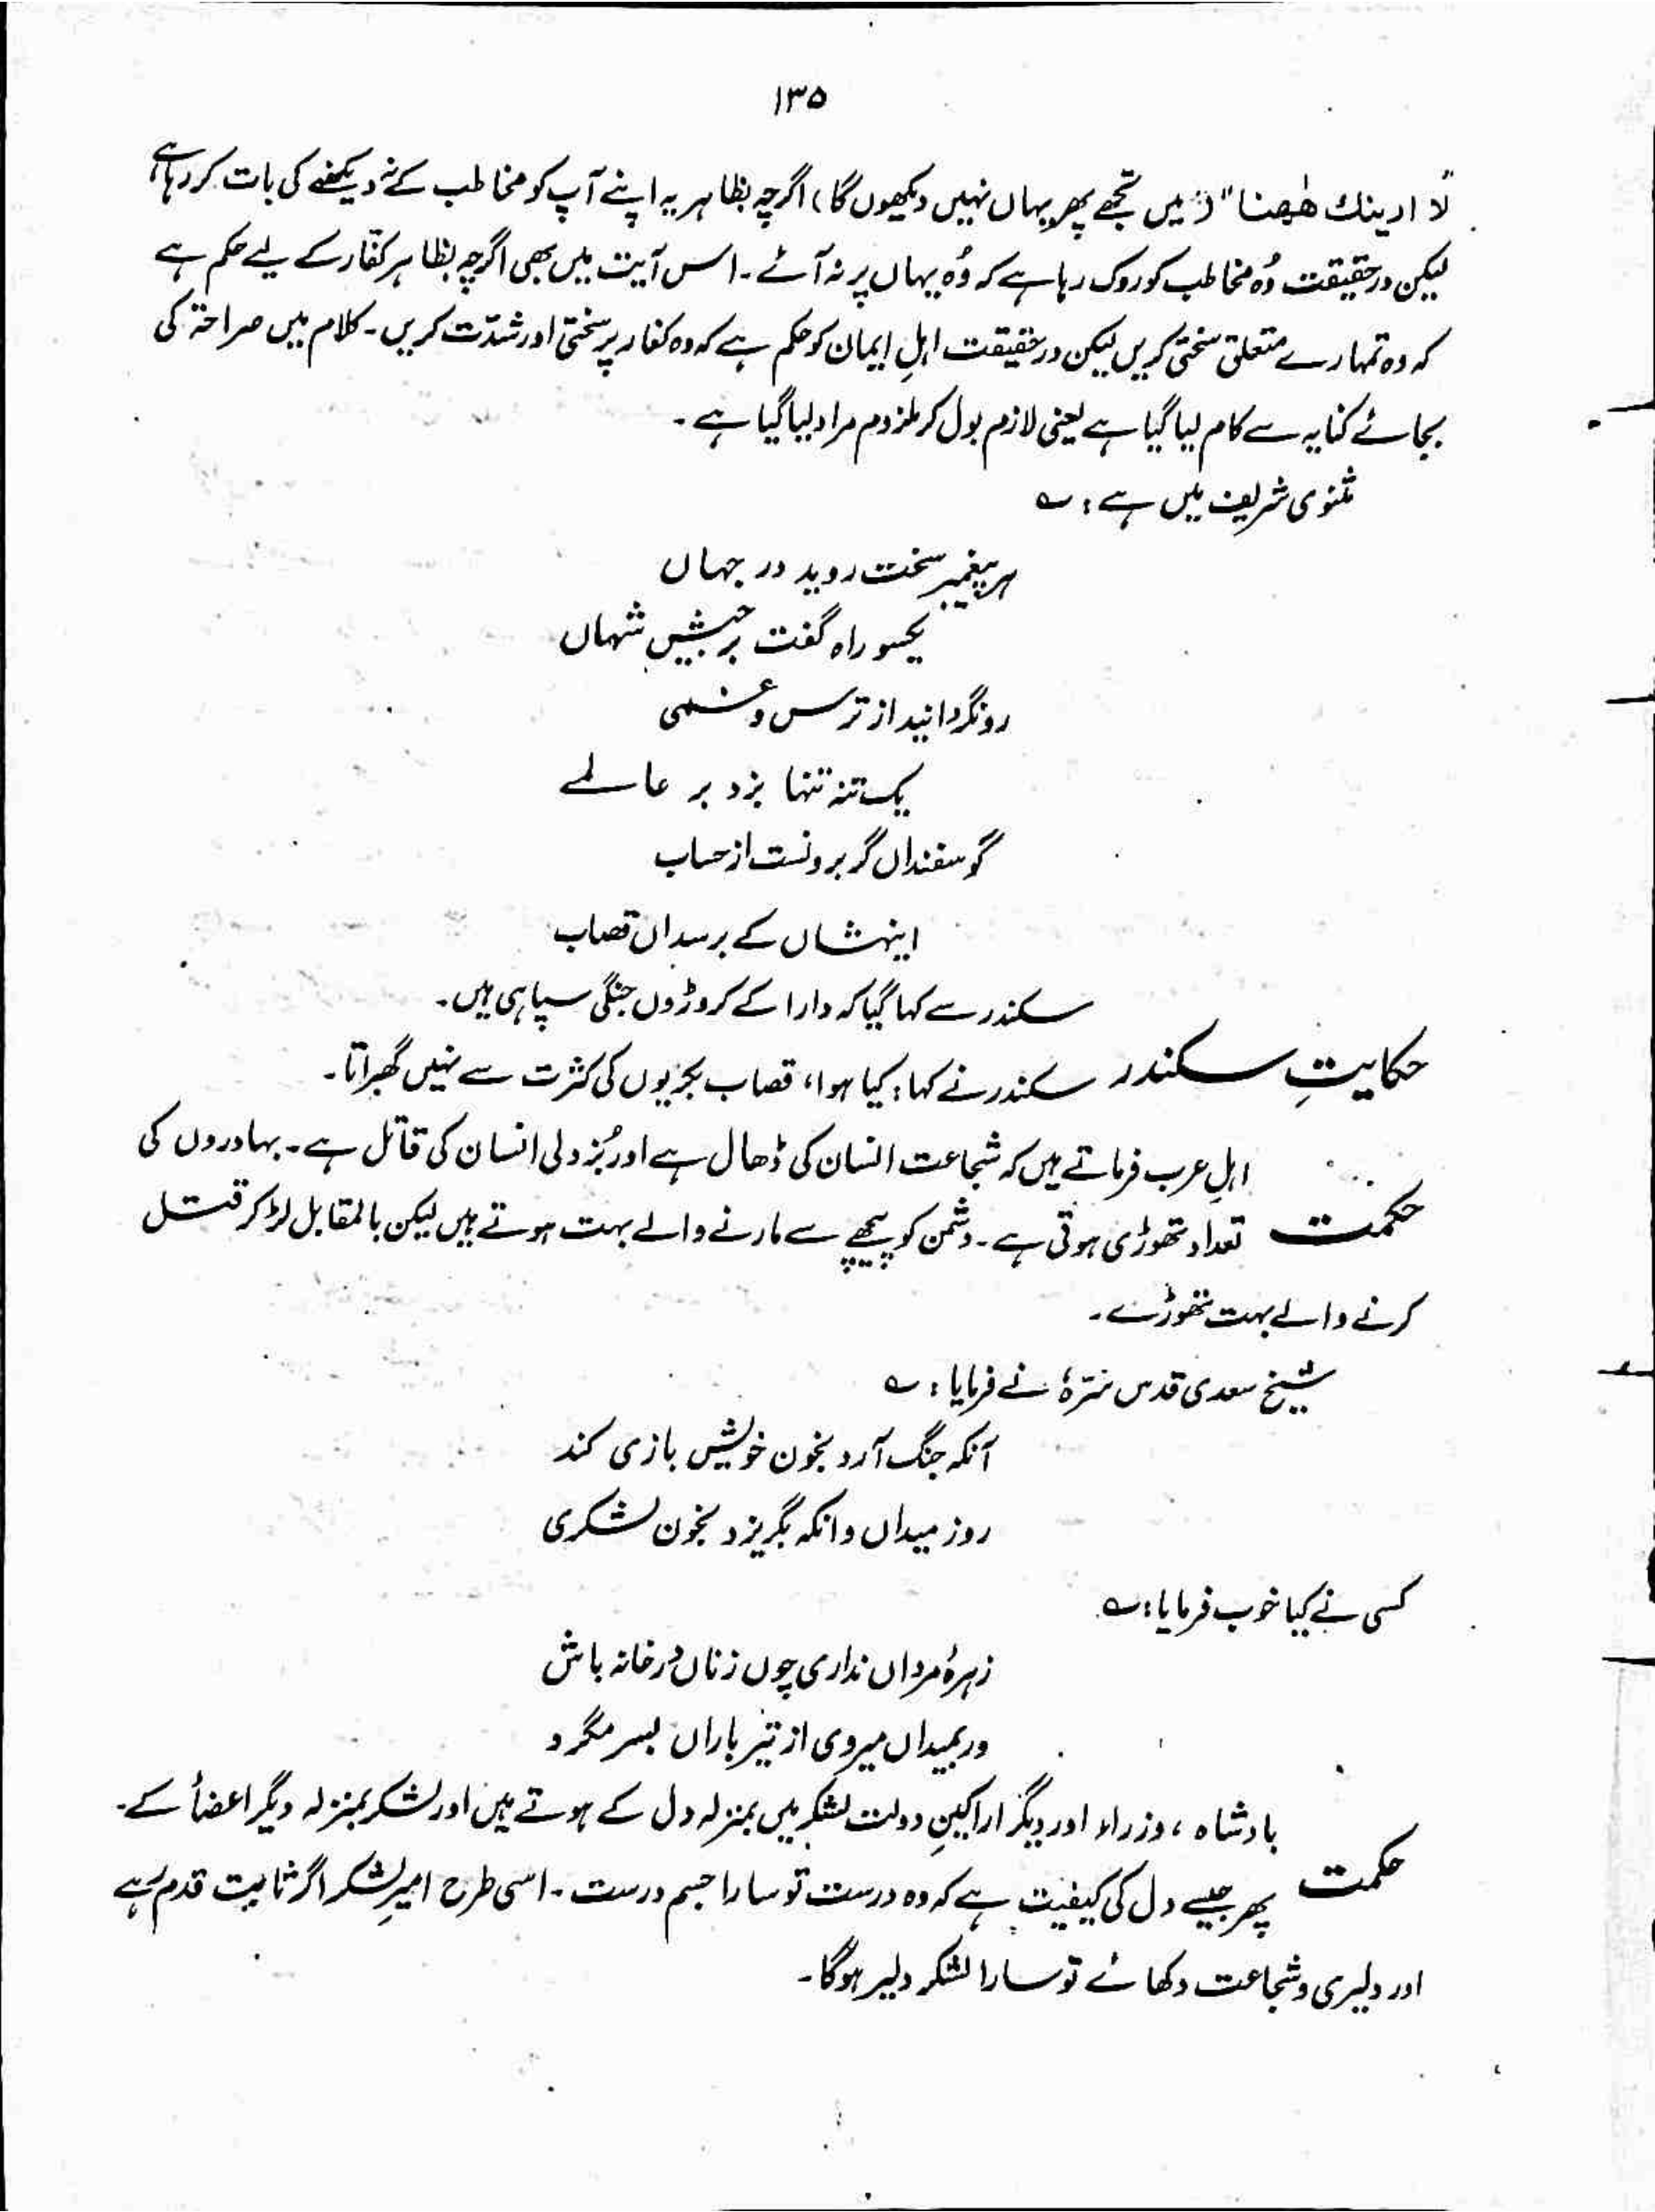 ۱۳۵
"لا ارینك ھٰھنا" (میں تجھے پھر یہاں نہیں دیکھوں گا) اگرچہ بظاہر یہ اپنے آپ کو مخاطب کے نہ دیکھنے کی بات کر رہا ہے
لیکن درحقیقت وُہ مخاطب کو روک رہا ہے کہ وُہ یہاں پر نہ آئے۔ اس آیت میں بھی اگرچہ بظاہر کفّار کے لیے حکم ہے
کہ وہ تمہارے متعلق سختی کریں لیکن درحقیقت اہلِ ایمان کو حکم ہے کہ وہ کفار پر سختی اور شدّت کریں۔ کلام میں صراحۃ کی
بجائے کنایہ سے کام لیا گیا ہے یعنی لازم بول کر ملزوم مراد لیا گیا ہے۔
مثنوی شریف میں ہے : ؎
ہر پیغمبر سخت روید در جہاں
یکسو راہ گفت بر جیش شہاں
رو نگردانید از ترس و غمی
یک تنہ تنہا بزد بر عالمے
گوسفنداں گر برونست از حساب
اینہشاں کے برسد اں قصاب
سکندر سے کہا گیا کہ دارا کے کروڑوں جنگی سپاہی ہیں۔
حکایتِ سکندر سکندر نے کہا : کیا ہوا ، قصاب بکریوں کی کثرت سے نہیں گھبراتا۔
اہلِ عرب فرماتے ہیں کہ شجاعت انسان کی ڈھال ہے اور بُزدلی انسان کی قاتل ہے۔ بہادروں کی
حکمت تعداد تھوڑی ہوتی ہے۔ دشمن کو پیچھے سے مارنے والے بہت ہوتے ہیں لیکن بالمقابل لڑ کر قتل
کرنے والے بہت تھوڑے۔
شیخ سعدی قدس سرّہٗ نے فرمایا : ؎
آنکہ جنگ آرد بخون خویش بازی کند
روز میداں وانکہ بگریزد بخون لشکری
کسی نے کیا خوب فرمایا : ؎
زہرۂ مرداں نداری چوں زناں در خانہ باش
ور بمیداں میروی از تیر باراں بسر مگرد
بادشاہ ، وزراء اور دیگر اراکینِ دولت لشکر میں بمنزلہ دل کے ہوتے ہیں اور لشکر بمنزلہ دیگر اعضأ کے۔
حکمت پھر جیسے دل کی کیفیت ہے کہ وہ درست تو سارا جسم درست۔ اسی طرح امیرِ لشکر اگر ثابت قدم رہے
اور دلیری و شجاعت دکھائے تو سارا لشکر دلیر ہوگا۔